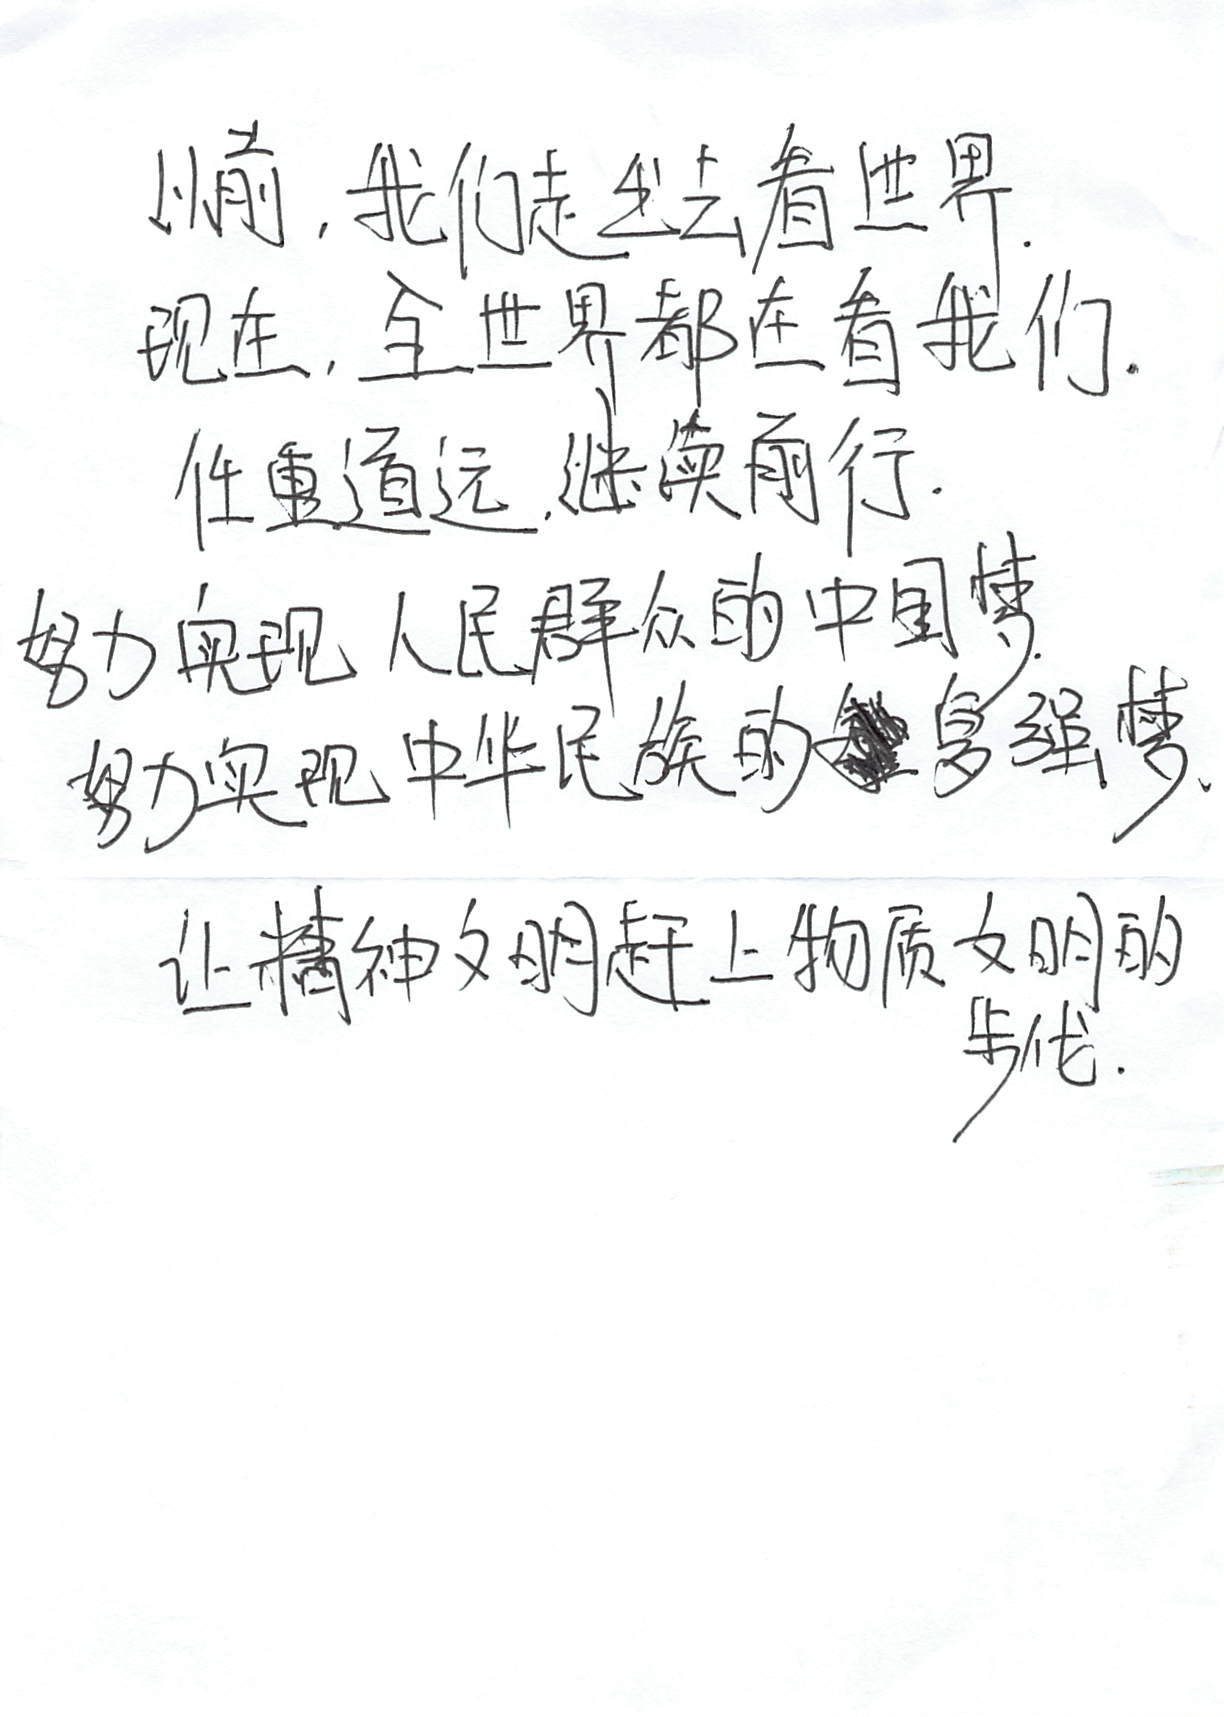 以前,我们走出去看世界.
现在,全世界都在看我们.
任重道远,继续前行.
努力实现人民群众的中国梦.
努力实现中华民族的富强梦.
让精神文明赶上物质文明的
步伐.